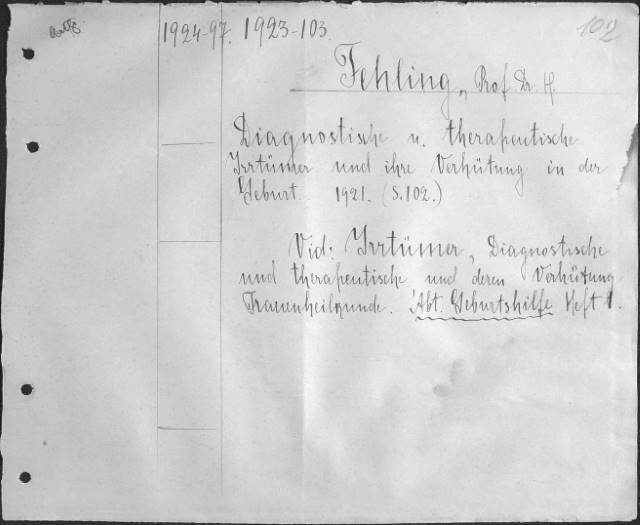 1924-97. 1923-103.
102
Fehling, Prof. Dr. H.
Diagnostische u. therapeutische
Irrtümer und ihre Verhütung in der
Geburt. 1921. (S.102.)
Vid: Irrtümer, Diagnostische
und therapeutische und deren Verhütung
Frauenheilkunde. Abt. Geburtshilfe Heft 1.